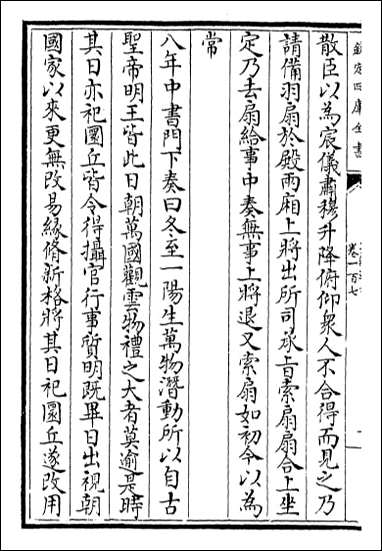 欽定四庫全書
卷一百七
散臣以為宸儀肅穆升降俯仰衆人不合得而見之乃
請備羽扇於殿兩廂上將出所司承旨索扇扇合上坐
定乃去扇給事中奏無事上將退又索扇如初今以為
常
八年中書門下奏曰冬至一陽生萬物潛動所以自古
聖帝明王皆此日朝萬國觀雲物禮之大者莫逾是時
其日亦祀圜丘皆令得攝官行事質明既畢日出視朝
國家以來更無改易縁脩新格將其日祀圜丘遂改用